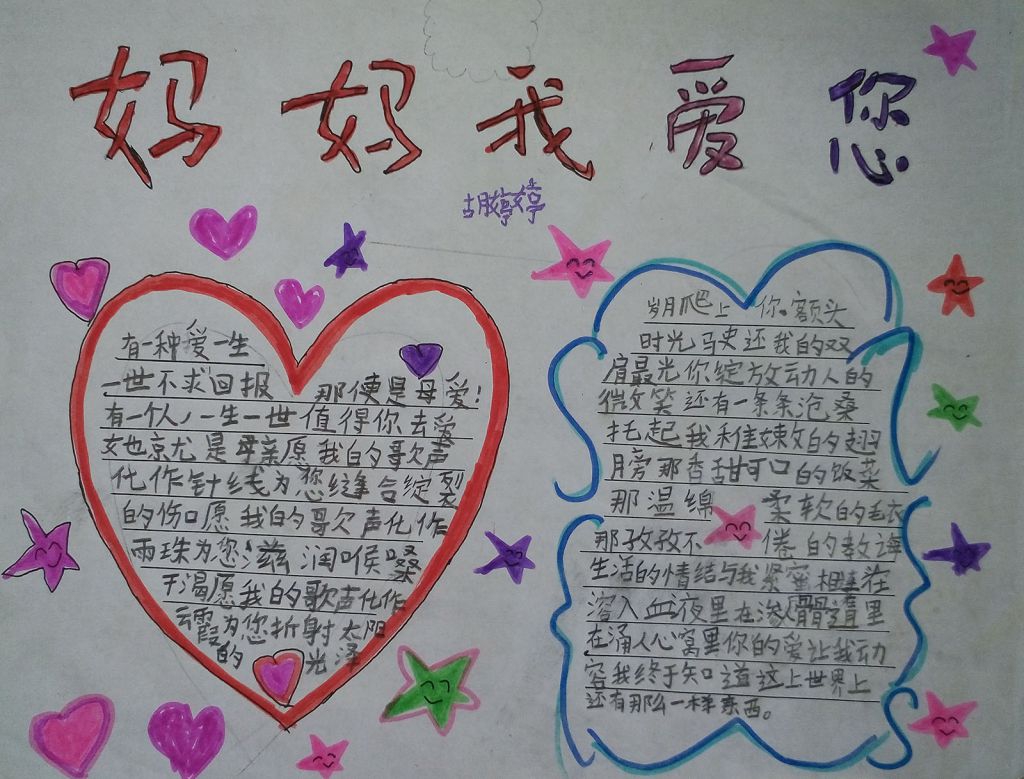 妈妈我爱您
胡婷婷
有一种爱一生
一世不求回报 那便是母爱!
有一个人,一生一世值得你去爱
她就是母亲愿我的歌声
化作针线为您缝合绽裂
的伤口愿我的歌声化作
雨珠为您滋润喉嗓
干渴愿我的歌声化作
云霞为您折射太阳
的 光泽
岁月爬上 你 额头
时光马史还我的双
肩最光你绽放动人的
微笑还有一条条沧桑
托起我稚嫩的翅
膀那香甜可口的饭菜
那温绵 柔软的毛衣
那孜孜不 倦的教诲
生活的情结与我紧密相连在
溶入血液里在渗入骨髓里
在涌入心窝里你的爱让我动
容我终于知道这上世界上
还有那么一样东西。